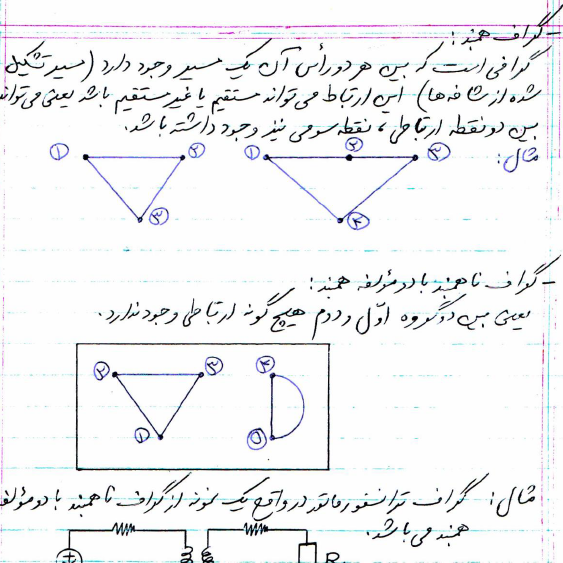 - گراف همبند:
گرافی است که بین هر دو رأس آن یک مسیر وجود دارد (مسیر تشکیل
شده از شاخه‌ها) این ارتباط می‌تواند مستقیم یا غیر مستقیم باشد یعنی می‌تواند
بین دو نقطه ارتباطی، نقطه سومی نیز وجود داشته باشد.
مثال:
۱ ۲ ۱ ۲ ۳
۳ ۴
- گراف ناهمبند با دو مؤلفه همبند:
یعنی بین دو گروه اوّل و دوم هیچ گونه ارتباطی وجود ندارد.
۲ ۳ ۴
۱ ۵
مثال: گراف ترانسفورماتور در واقع یک نمونه از گراف ناهمبند با دو مؤلفه
همبند می باشد.
R